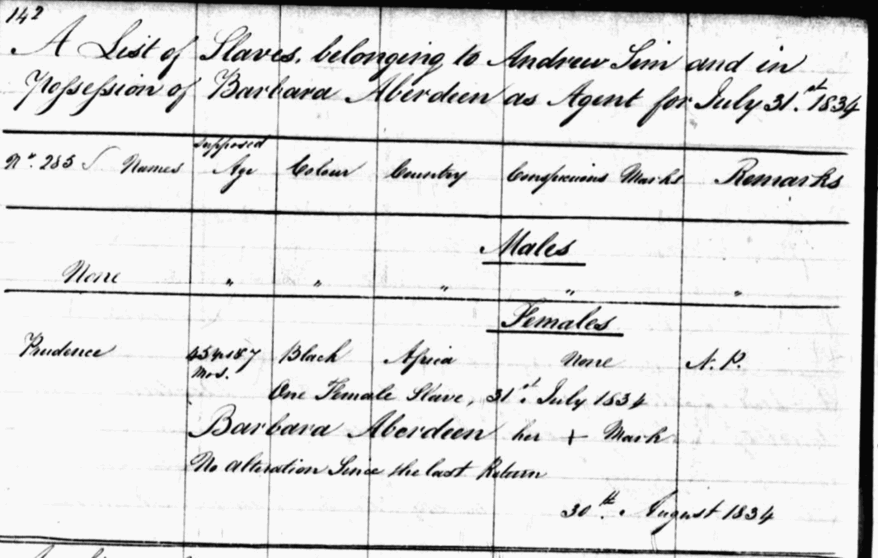 142
A List of Slaves, belonging to Andrew Sim and in
Possession of Barbara Aberdeen as Agent for July 31.st 1834
No. 285 Names Supposed Age Colour Country Conspicuous Marks Remarks
Males
None " " " " "
Females
Prudence 45 yrs 7 Mos. Black Africa None N. P.
One Female Slave, 31st July 1834
Barbara Aberdeen her + Mark
No alteration Since the last Return
30th August 1834